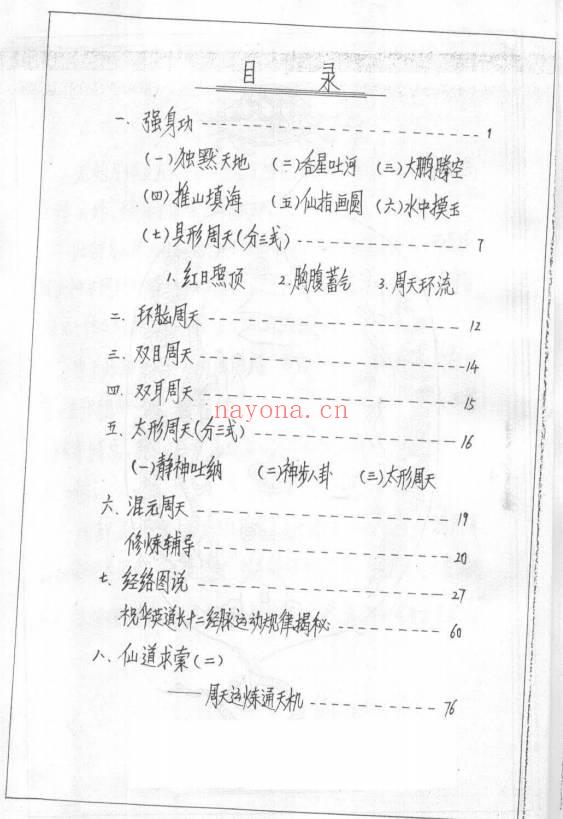 目 录
一、强身功 1
(一)独黙天地 (二)吞星吐河 (三)大鹏腾空
(四)推山填海 (五)仙指画圆 (六)水中摸玉
(七)具形周天(分三式) 7
1.红日照顶 2.胸腹蓄气 3.周天环流
二、环脑周天 12
三、双目周天 14
四、双耳周天 15
nayona.cn
五、太形周天(分三式) 16
(一)静神吐纳 (二)神步八卦 (三)太形周天
六、混元周天 19
修炼辅导 20
七、经络图说 27
祝华英道长十二经脉运动规律揭秘 60
八、仙道求索(二)
——周天运炼通天机 76